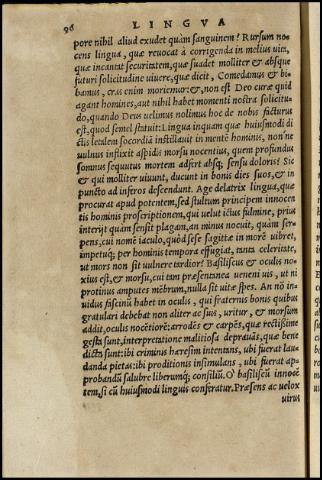 96 LINGVA
pore nihil aliud exudet quàm sanguinem? Rursum no
cens lingua, quæ reuocat à corrigenda in melius uita,
quæ incantat securitatem, quæ suadet molliter & absque
futuri solicitudine uiuere, quæ dicit, Comedamus & bi-
bamus, cras enim moriemur: &, non est Deo curæ quid
agant homines, aut nihil habet momenti nostra solicitu-
do, quando Deus uelimus nolimus hoc de nobis facturus
est, quod semel statuit: Lingua inquam quæ huiusmodi di
ctis letalem socordiã instillauit in mentẽ hominis, non'ne
uulnus inflixit aspidis morsu nocentius, quem profundus
somnus sequutus mortem adfert absq; sensu doloris? Sic
& qui molliter uiuunt, ducunt in bonis dies suos, & in
puncto ad inferos descendunt. Age delatrix lingua, quæ
procurat apud potentem, sed stultum principem innocen
tis hominis proscriptionem, qui uelut ictus fulmine, prius
interijt quàm sensit plagam, an minus nocuit, quàm ser-
pens, cui nomẽ iaculo, quòd sese sagittæ in morẽ uibret,
impetuq; per hominis tempora effugiat, tanta celeritate,
ut mors non sit uulnere tardior? Basiliscus & oculis no-
xius est, & morsu, cui tam præsentanea ueneni uis, ut ni
protinus amputes mẽbrum, nulla sit uitæ spes. An nõ in-
uidus fascinũ habet in oculis, qui fraternis bonis quibus
gratulari debebat non aliter ac suis, uritur, & morsum
addit, oculis nocẽtiorẽ: arrodẽs & carpẽs, quæ rectissime
gesta sunt, interpretatione malitiosa deprauãs, quæ bene
dicta sunt: ibi criminis hæresim intentans, ubi fuerat lau-
danda pietas: ibi proditionis insimulans, ubi fuerat ap-
probandũ salubre liberumq; consiliũ. O basiliscũ innocẽ
tem, si cũ huiusmodi linguis conferatur. Præsens ac uelox
uirus